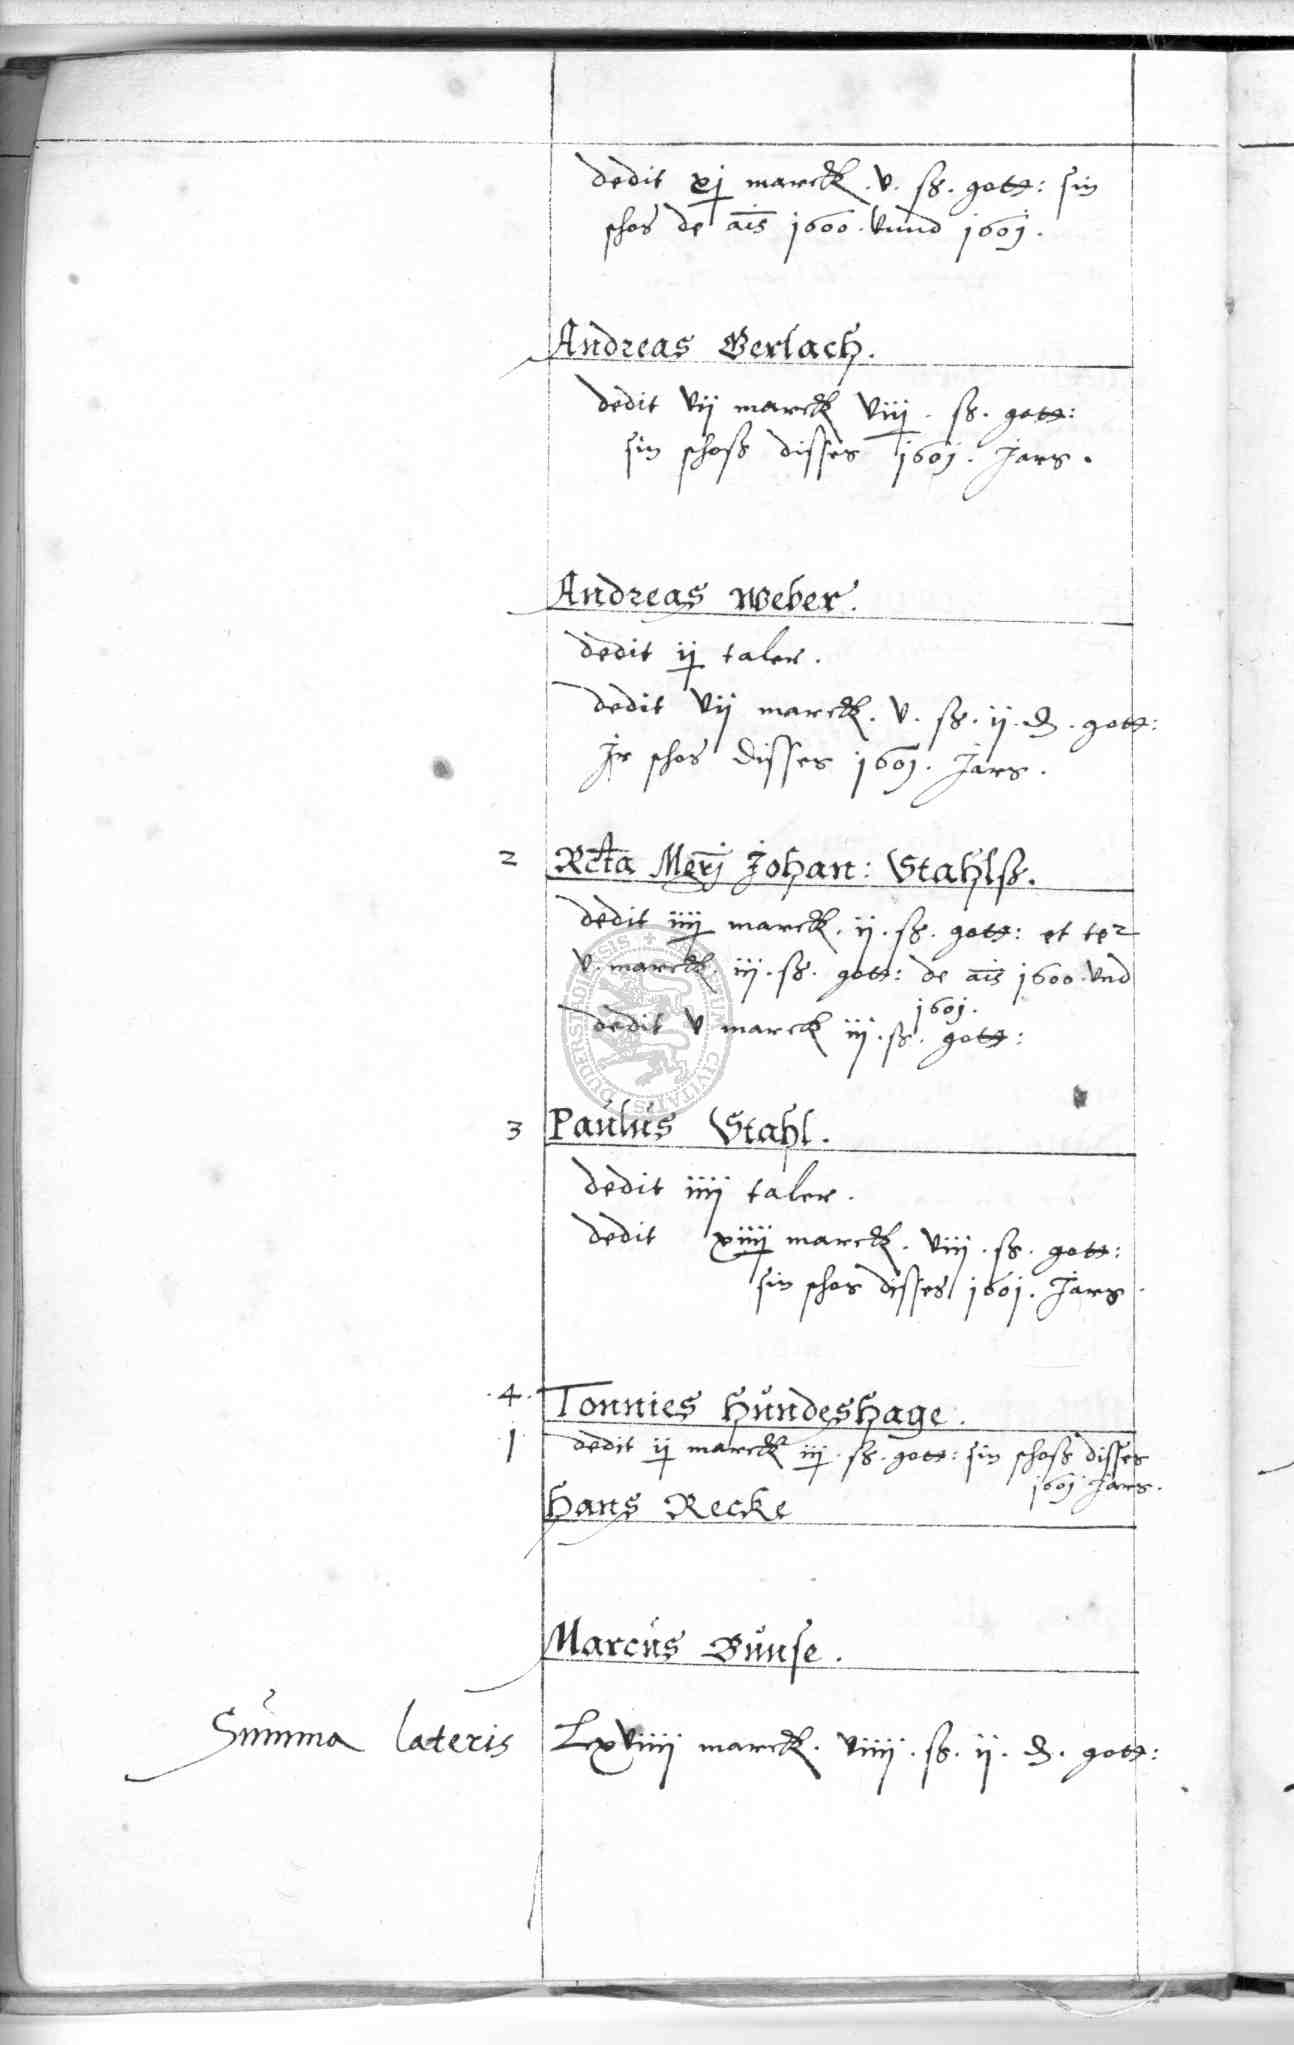 dedit xj marck. v. ß. gott: sin
schos de ais 1600. vnnd 1601.
Andreas Gerlach.
dedit vij marck viij. ß. gott:
sin schoß disses 1601. Jars.
Andreas Weber.
dedit ij taler.
dedit vij marck. v. ß. ij. ₰. gott:
Jr schos disses 1601. Jars.
2 Rcta Mgrj Johan: Stahlß.
dedit iiij marck. ij. ß. gott: et
v. marck. iij. ß. gott: de ais 1600. vnd
1601.
dedit v marck iij. ß. gott:
3 Paulus Stahl.
dedit iiij taler.
dedit xiiij marck. viij. ß. gott:
sin schos disses 1601. Jars.
.4. Tonnies Hundeshage.
1 dedit ij marck iij. ß. gott: sin schoß disses
1601 Jars.
Hans Recke
Marcus Bunse.
Summa lateris Lxviiij marck. viiij. ß. ij. ₰. gott:
SIGILLUM CIVITATIS DUDERSTADIENSIS